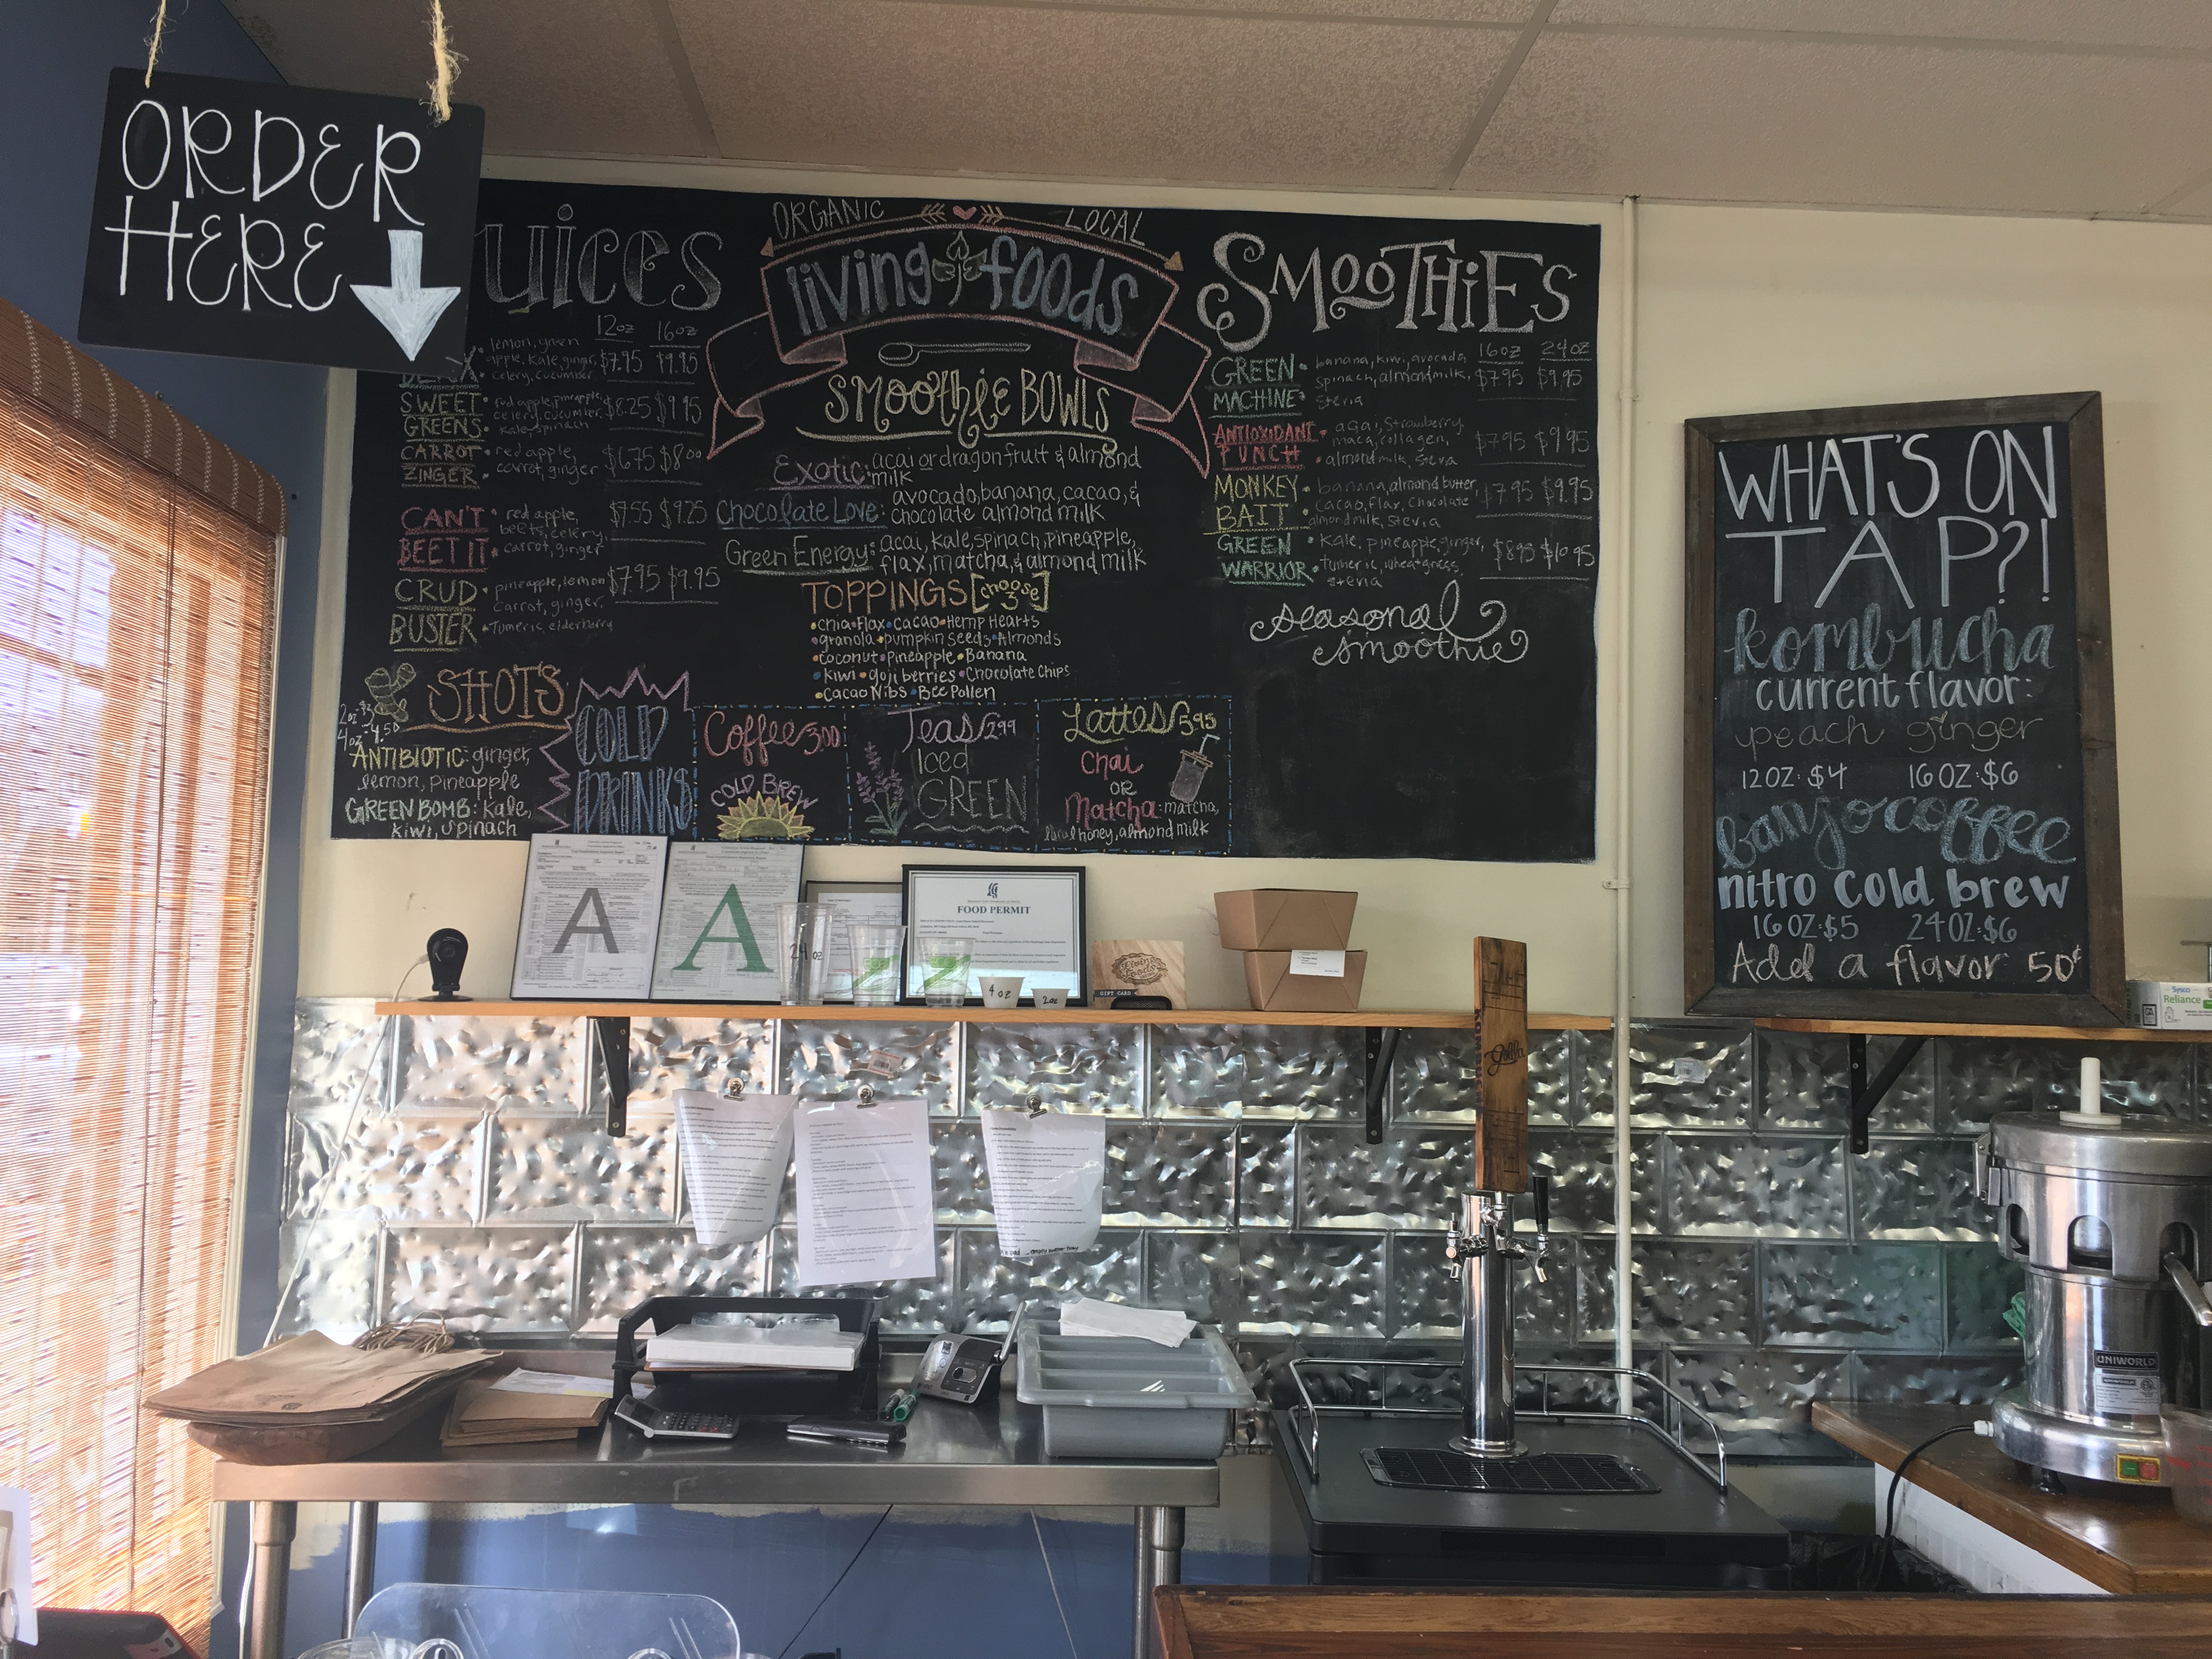 ORDER
HERE
uices
12oz 16oz
lemon, green
apple, kale, ginger, $7.95 $9.95
celery, cucumber
SWEET • red apple, pineapple,
GREENS celery, cucumber, $8.25 $9.95
kale, spinach
CARROT • red apple, $6.75 $8.00
ZINGER carrot, ginger
CAN'T • red apple, $7.55 $9.25
BEET IT beets, celery,
• carrot, ginger
CRUD • pineapple, lemon $7.95 $9.95
BUSTER carrot, ginger,
• Tumeric, elderberry
SHOTS
2oz $3
4oz 4.50
ANTIBIOTIC: ginger,
lemon, pineapple
GREEN BOMB: Kale,
kiwi, spinach
ORGANIC LOCAL
living foods
SMOOTHIE BOWLS
Exotic: acai or dragon fruit & almond
milk
Chocolate Love: avocado, banana, cacao, &
chocolate almond milk
Green Energy: acai, kale, spinach, pineapple,
flax, matcha, & almond milk
TOPPINGS [choose 3]
• chia • Flax • cacao • Hemp Hearts
• granola • pumpkin seeds • Almonds
• coconut • Pineapple • Banana
• Kiwi • goji berries • Chocolate Chips
• Cacao Nibs • Bee Pollen
COLD
DRINKS
Coffee 3.00
COLD BREW
Teas 2.99
Iced
GREEN
Lattes 5.95
Chai
OR
Matcha: matcha,
local honey, almond milk
SMOOTHIES
16oz 24oz
GREEN • banana, kiwi, avocado,
MACHINE spinach, almond milk, $7.95 $9.95
stevia
ANTIOXIDANT • acai, strawberry,
PUNCH maca, collagen, $7.95 $9.95
• almond milk, stevia
MONKEY • banana, almond butter, $7.95 $9.95
BAIT cacao, flax, chocolate
almond milk, stevia
GREEN • kale, pineapple, ginger, $8.95 $10.95
WARRIOR • tumeric, wheatgrass,
stevia
seasonal
smoothie
WHAT'S ON
TAP?!
kombucha
current flavor:
peach ginger
12OZ: $4 16OZ: $6
banjo coffee
nitro cold brew
16OZ: $5 24OZ: $6
Add a flavor 50¢
A
A
24 oz
FOOD PERMIT
4 oz
2oz
GIFT CARD
Sysco
Reliance
UNIWORLD